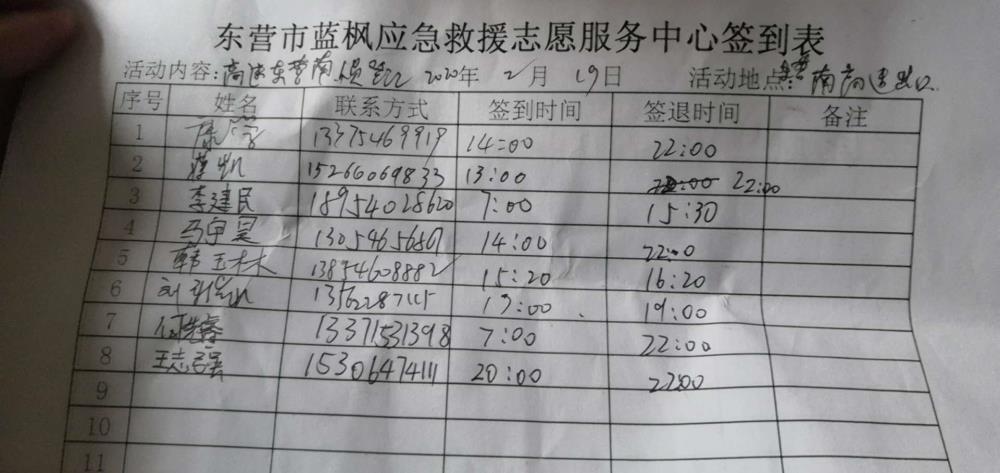 东营市蓝枫应急救援志愿服务中心签到表
活动内容:高速东营南 2020年 2月 19日 活动地点:东营南高速出口
序号 姓名 联系方式 签到时间 签退时间 备注
1 13375469919 14:00 22:00
2 15266069833 13:00 22:00
3 李建民 18954028620 7:00 15:30
4 马宇昊 14:00 22:0
5 韩玉林 13854608882 15:20 16:20
6 刘 13562287115 19:00
7 何先睿 13371531398 7:00 22:00
8 王志强 15306474111 20:00 22:00
9
10
11